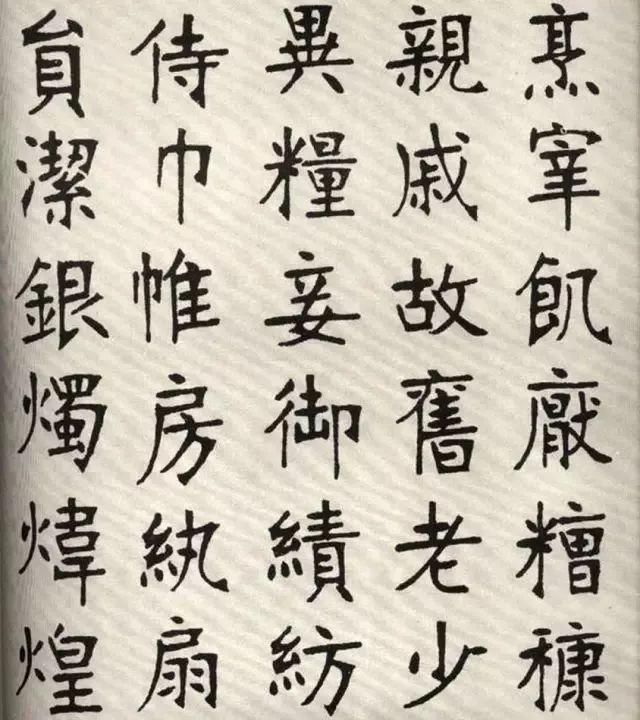 烹宰飢厭糟糠
親戚故舊老少
異糧妾御績紡
侍巾帷房紈扇
員潔銀燭煒煌